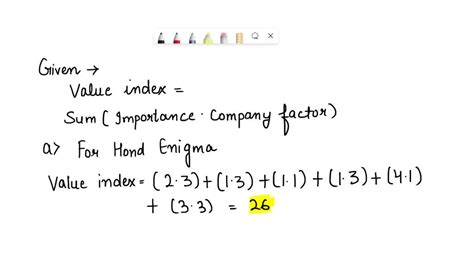 Given →
Value index =
Sum ( Importance · Company factor)
a> For Hond Enigma
Value index = (2·3)+(1·3)+(1·1)+(1·3)+(4·1)
+ (3·3) = 26